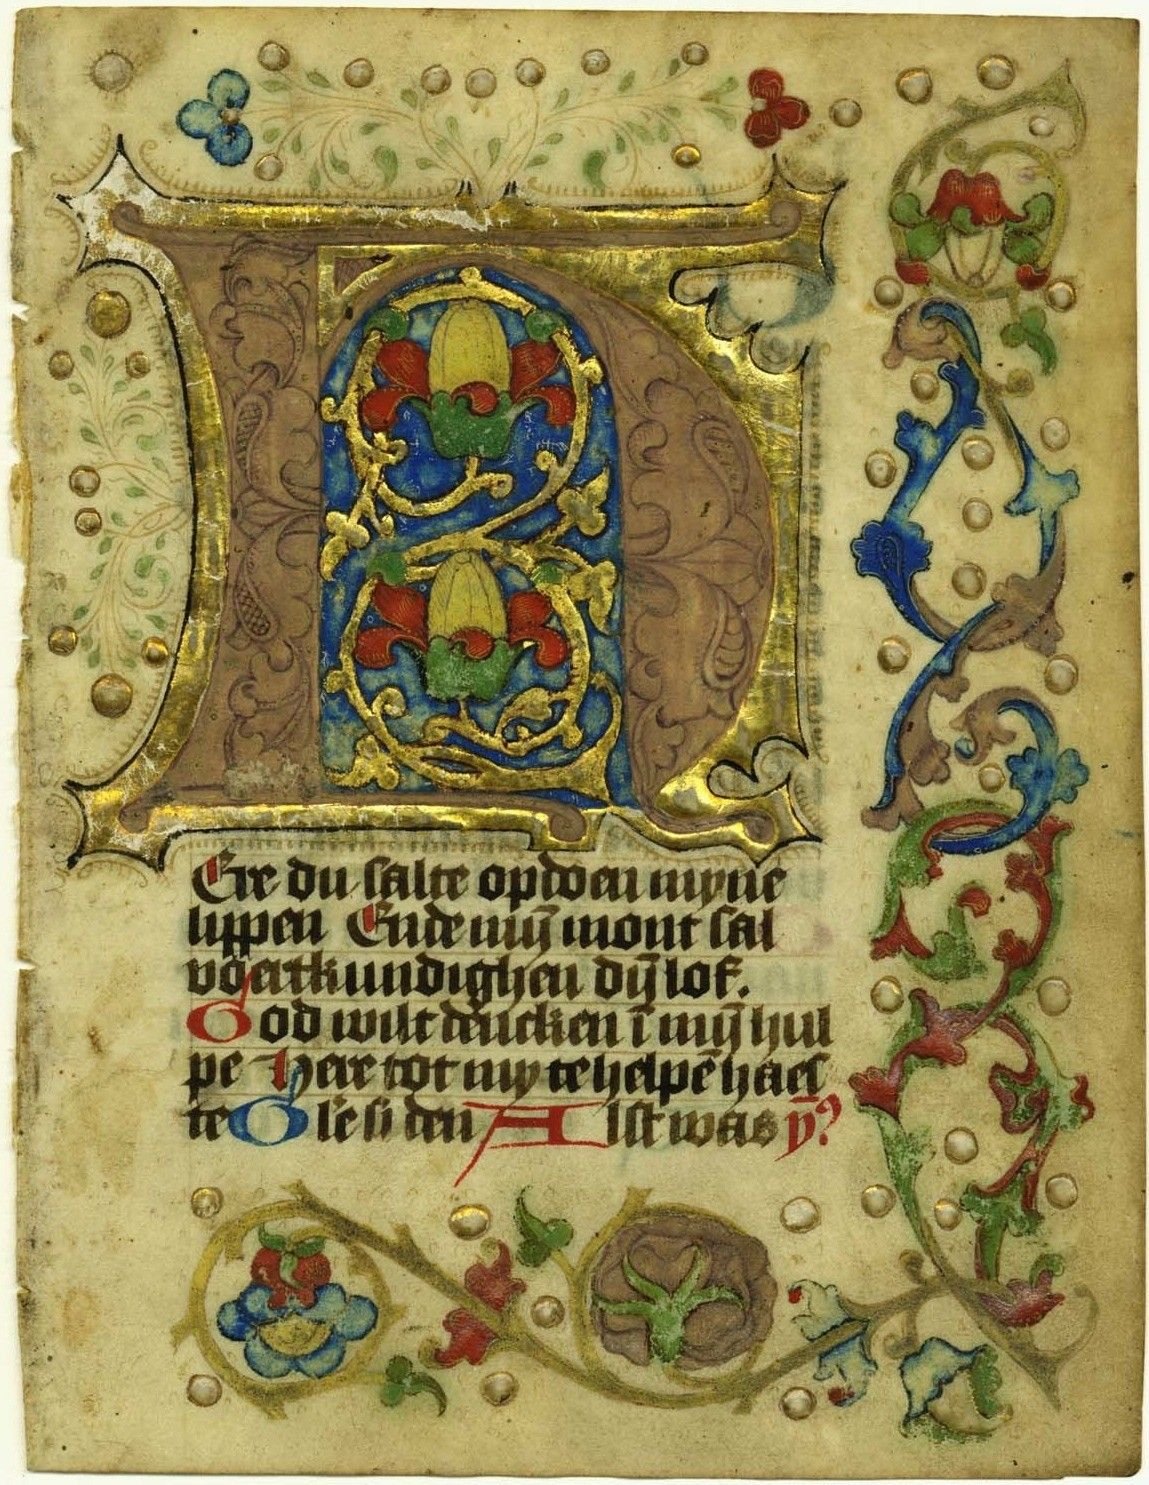 H
Ere du salte opdoen myne
lippen Ende mÿ mont sal
voertkundighen dÿ lof.
God wilt dencken ī mÿ hul
pe Here tot my te helpē haes
te Glē si den Alst was ꝟ